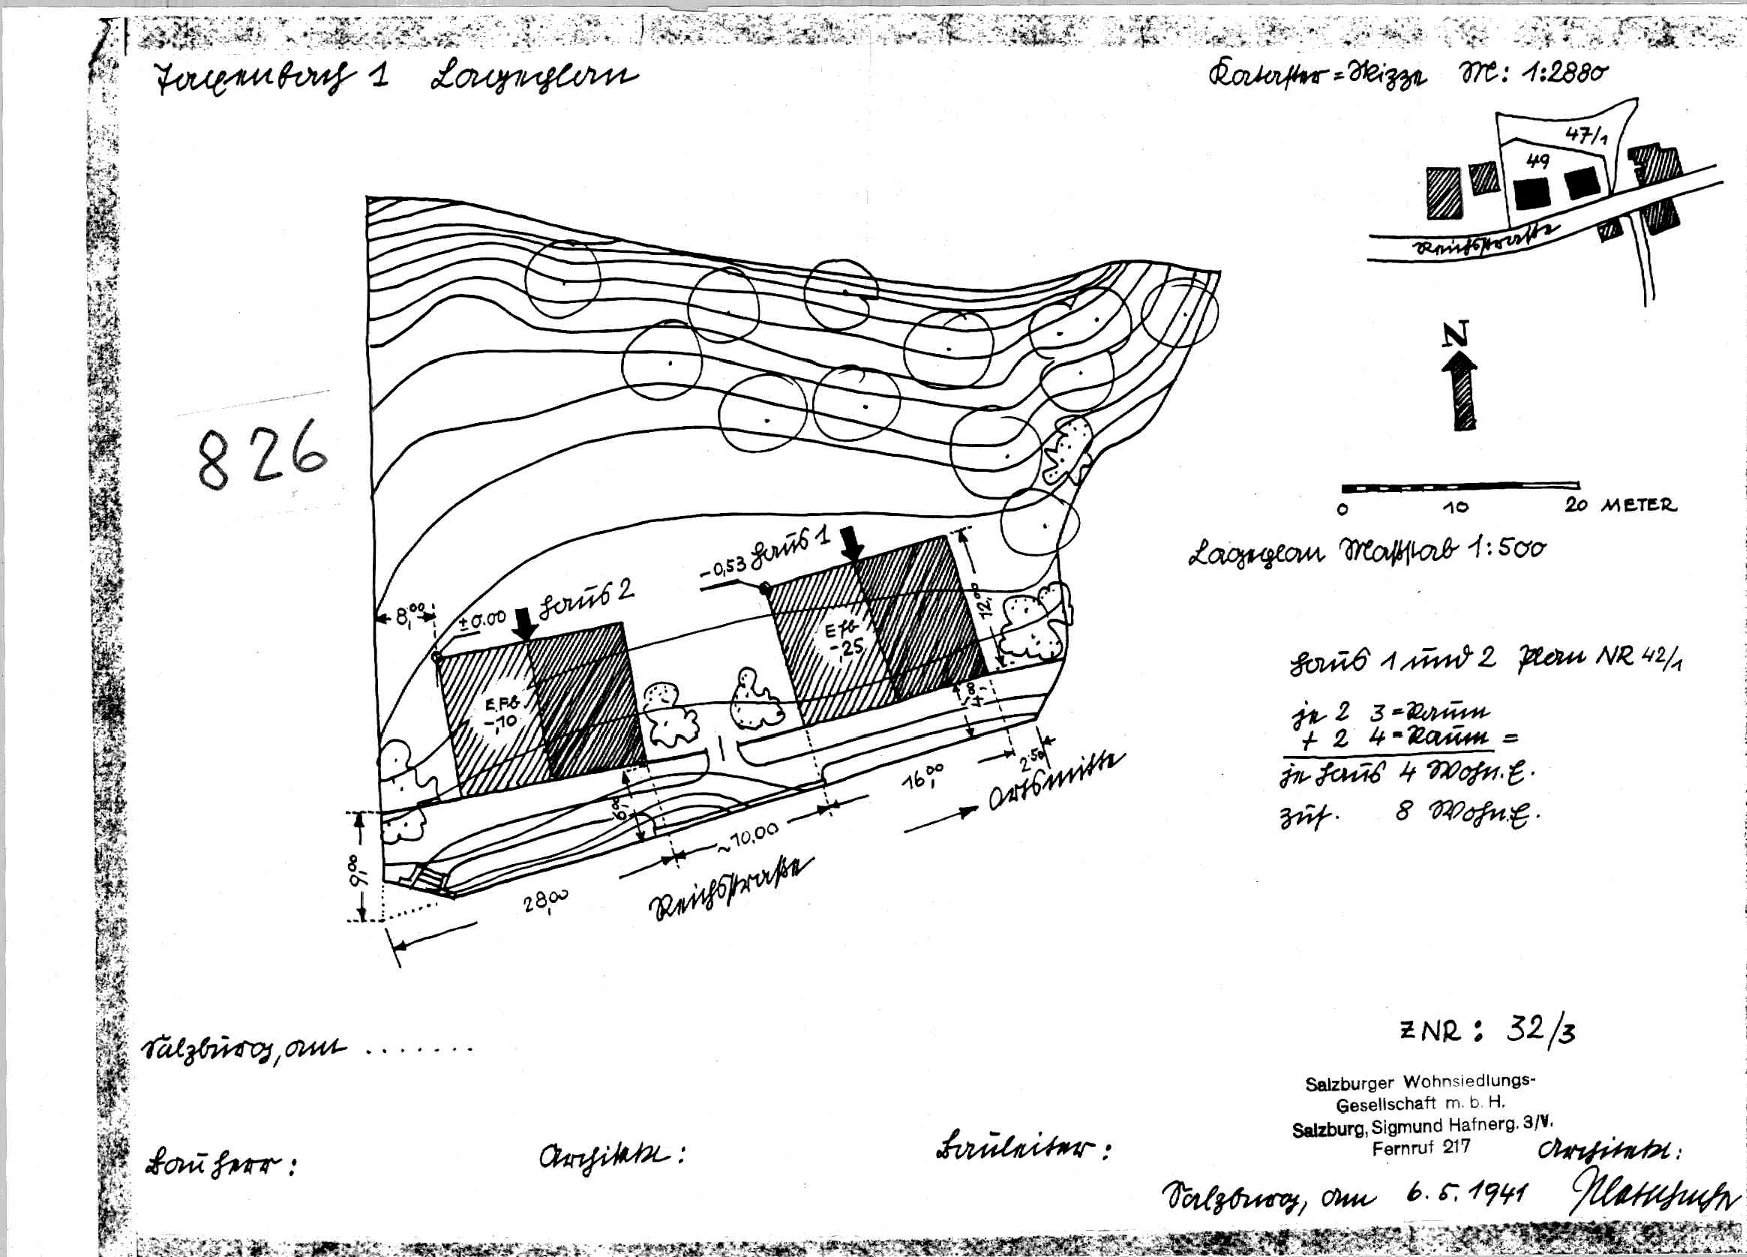 Taxenbach 1 Lageplan
Kataster=Skizze M: 1:2880
47/1
49
Reichsstraße
N
826
0 10 20 METER
Lageplan Maßstab 1:500
-0,53 Haus 1
±0.00 Haus 2
8,00
12,00
E.Fb.
-,25
E.Fb.
-,10
Haus 1 und 2 Plan NR 42/1
je 2 3=Raum
+ 2 4=Raum =
je Haus 4 Wohn.E.
zus. 8 Wohn.E.
6,00
9,00
2.50
16,00
~10,00
28,00
Ortsmitte
Reichsstraße
ZNR: 32/3
Salzburg, am .......
Salzburger Wohnsiedlungs-
Gesellschaft m. b. H.
Salzburg, Sigmund Hafnerg. 3/V.
Fernruf 217
Bauherr:
Architekt:
Bauleiter:
Architekt:
Salzburg, am 6.5.1941